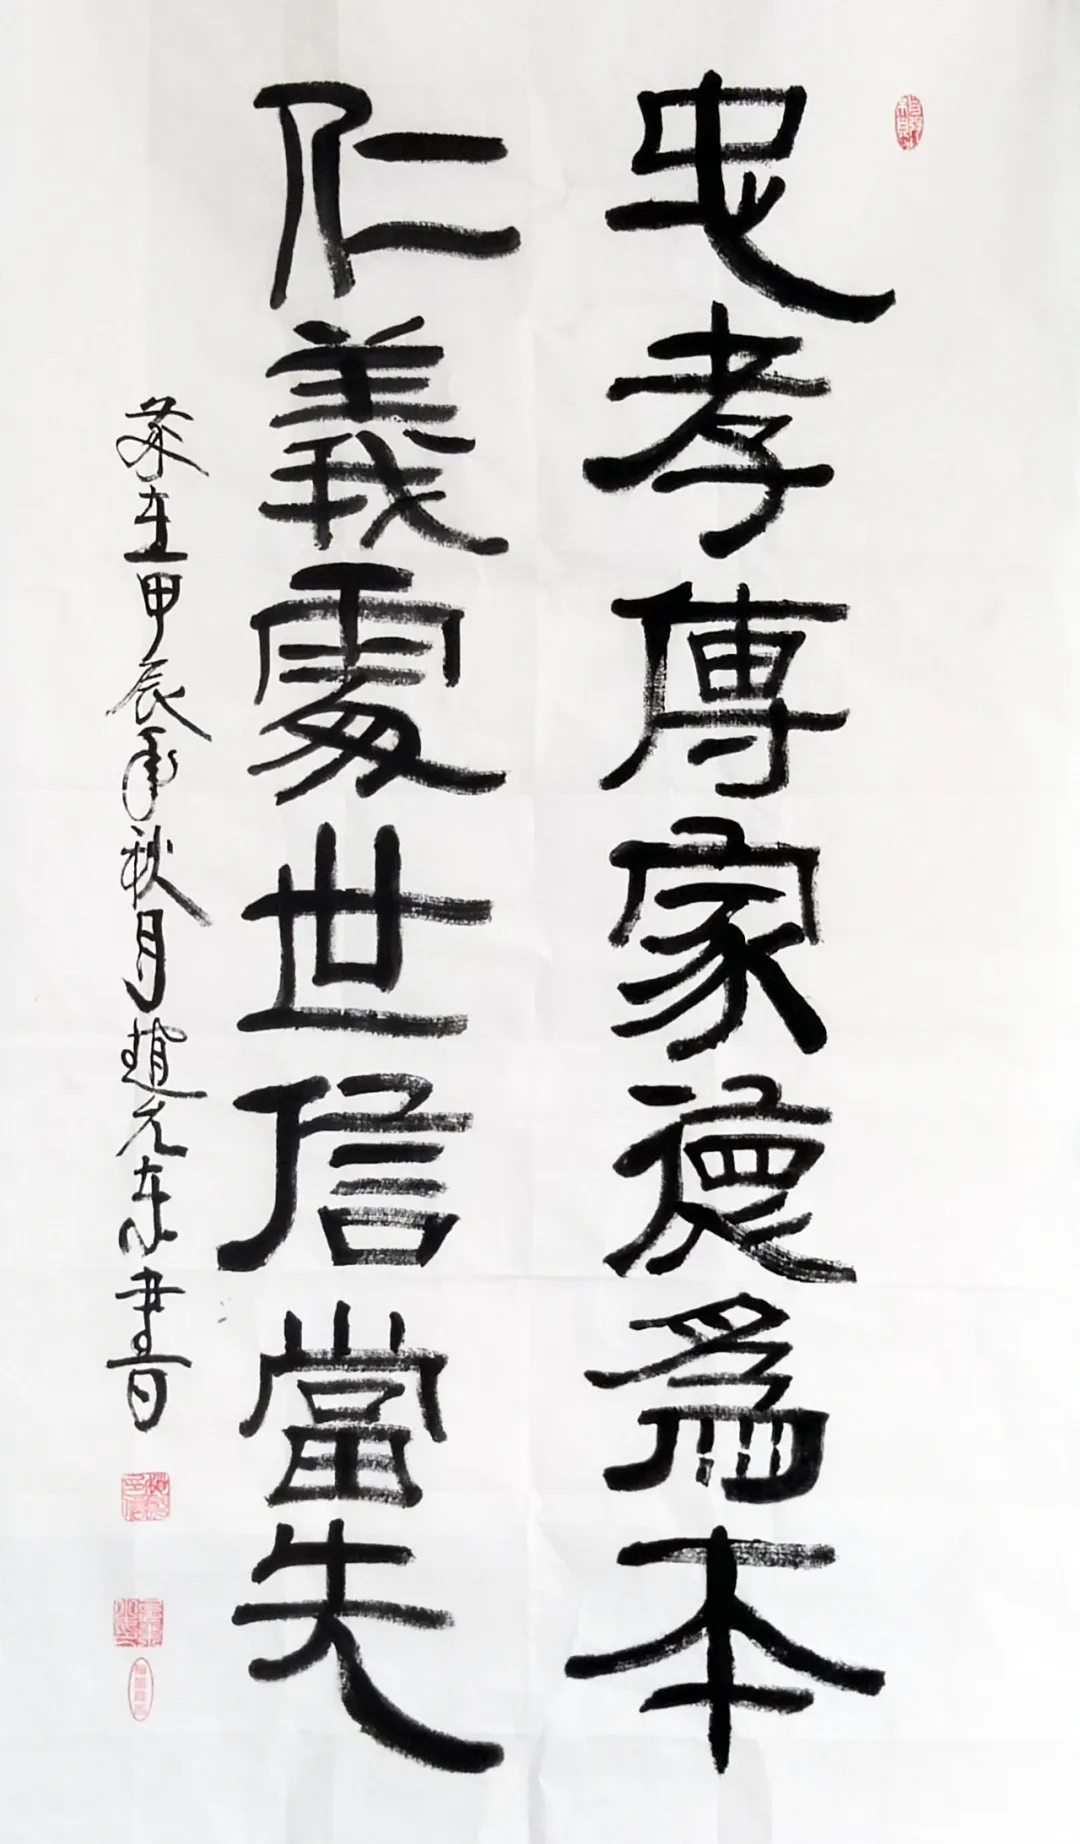 忠孝傳家德爲本
仁義處世信當先
歲在甲辰年秋月趙元东書